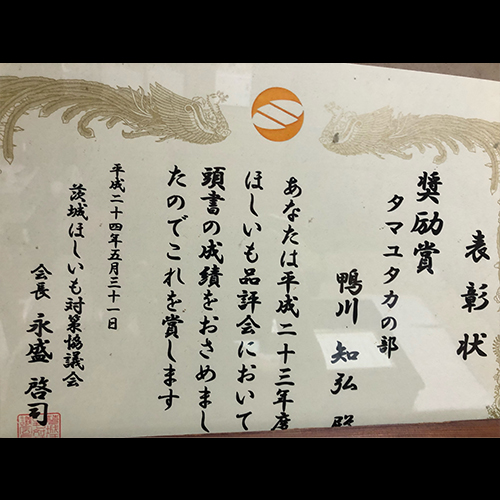 表彰状
奨励賞
タマユタカの部
鴨川知弘殿
あなたは平成二十三年度
ほしいも品評会において
頭書の成績をおさめまし
たのでこれを賞します
平成二十四年五月三十一日
茨城ほしいも対策協議会
会長 永盛啓司